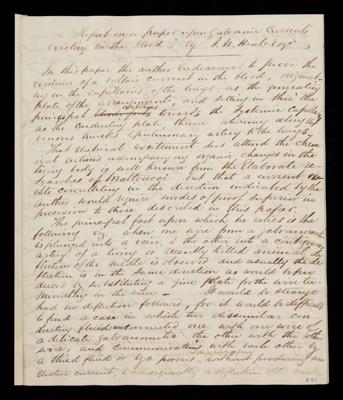 Report on a paper upon Galvanic Currents
existing in the blood, by J. N. Heale Esqr.
In this paper the author endeavours to prove the
existence of a voltaic current in the blood, originat-
ing in the capillaries of the lungs as the generating
plate of the arrangement, and setting in thro' the
principal arteries towards the Systemic Capillaries
as the conducting plate, thence returning along the
venous trunks & pulmonary artery to the lungs.
That electrical excitement does attend the chem-
ical actions accompanying organic changes in the
living body is well known from the elaborate re-
searches of Matteucci. But that a current ex-
ists circulating in the direction indicated by the
author would require modes of proof superior in
precision to those described in this paper.
The principal fact upon which he relies is the
following viz. when one wire from a galvanometer
is plunged into a vein, & the other into a contiguous
artery of a living or recently killed animal, de-
flection of the needle is observed and usually the de-
flection is in the same direction as would be pro-
duced by substituting a zinc plate for the wire ter-
minating in the vein. It would be strange
had no deflection followed, for it would be difficult
to find a case in which two dissimilar con-
ducting fluids connected one with one wire of
a delicate galvanometer, the other with the other
wire, and communicating with each other by
a third fluid or by a porous diaphragm, without producing an
electric current, & consequently a deflection of the needle